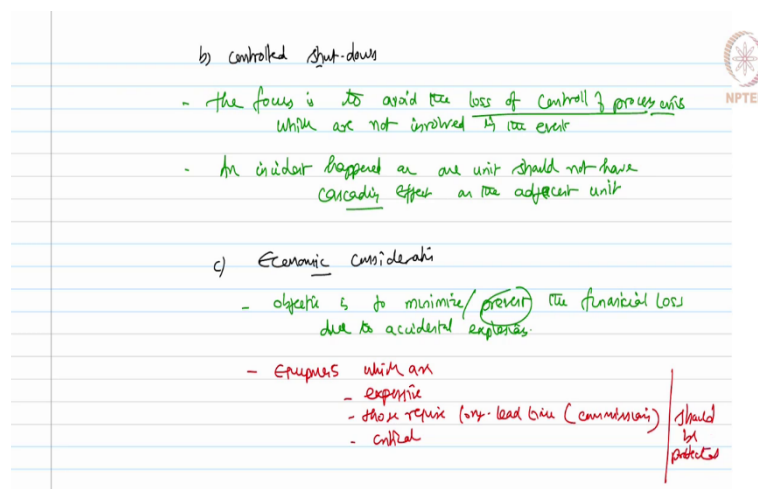 b) controlled shut-down
NPTEL
- the focus is to avoid the loss of controll of process units
which are not involved in the event
- An incident happened on one unit should not have
cascading effect on the adjacent unit
c) Economic consideration
- objective is to minimize/prevent the financial loss
due to accidental explosion.
- Equipments which are
- expensive
- those require long-lead time (commission)
- critical
should
be
protected